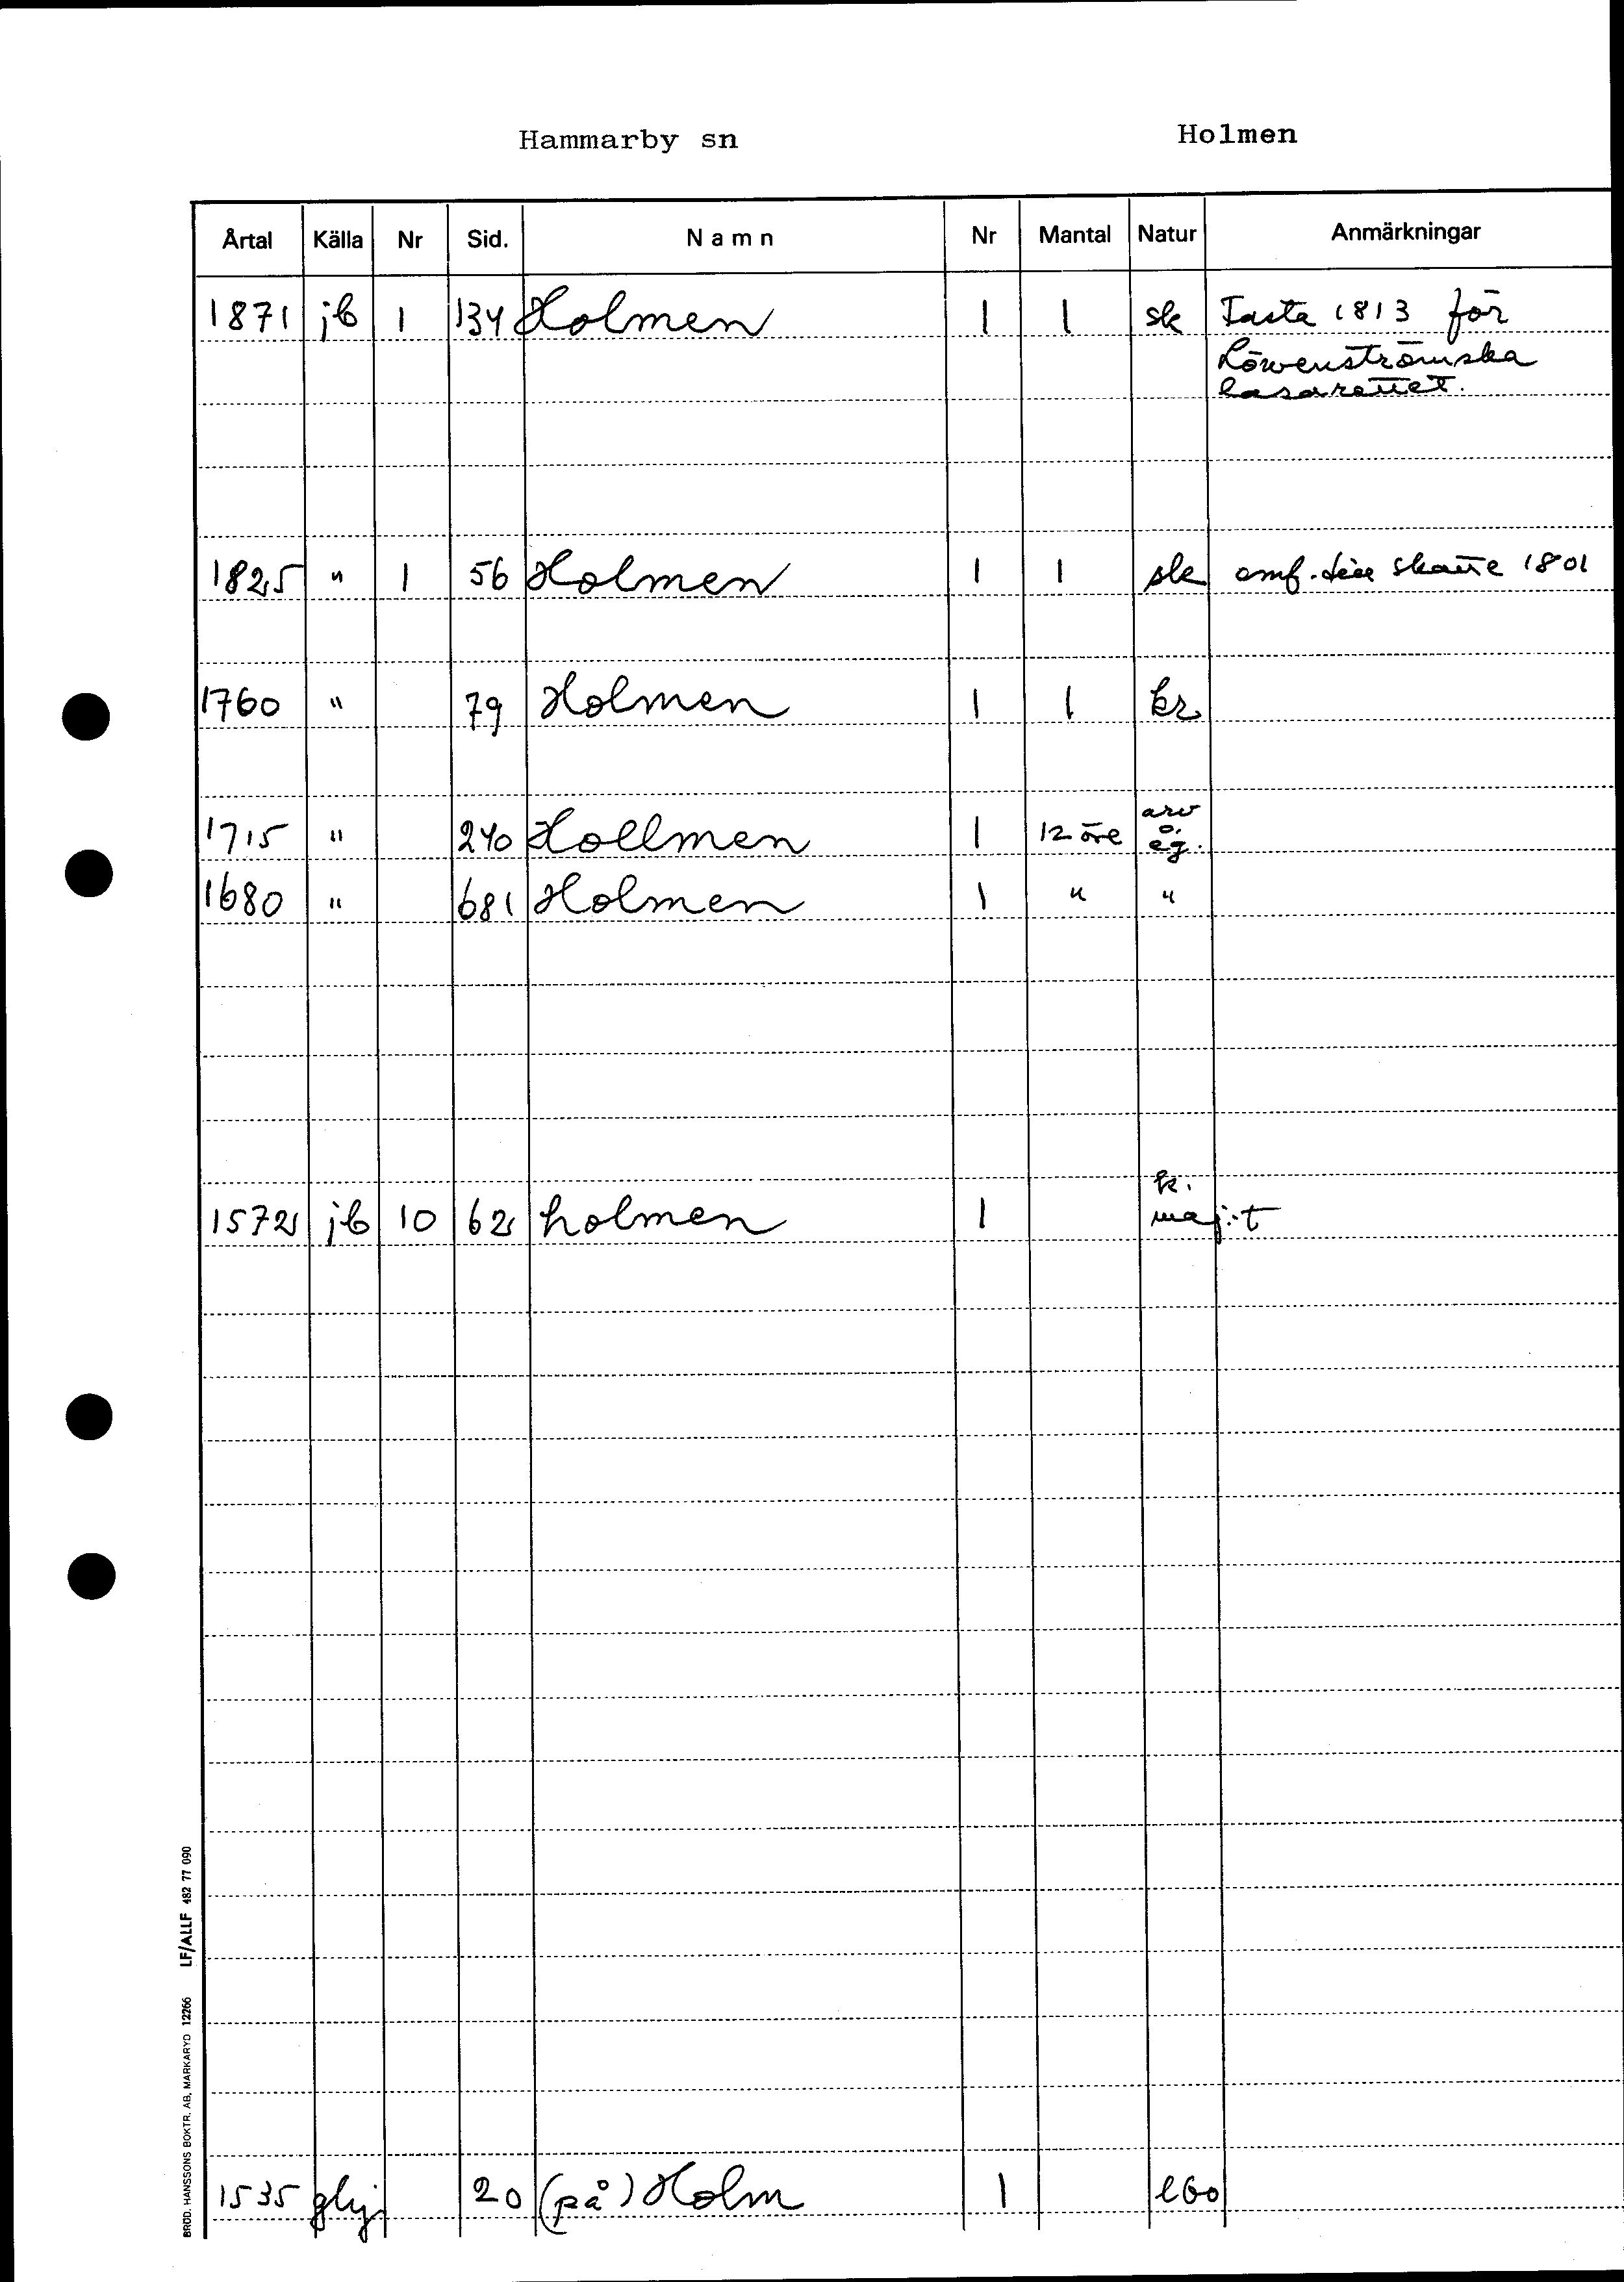 Hammarby sn Holmen
Årtal Källa Nr Sid. Namn Nr Mantal Natur Anmärkningar
1871 jb 1 134 Holmen 1 1 sk Fasta 1813 för
Löwenströmska
lasarettet.
1825 " 1 56 Holmen 1 1 sk omf. till skatte 1801
1760 " 79 Holmen 1 1 kr
1715 " 240 Hollmen 1 12 öre arv
o.
eg.
1680 " 681 Holmen 1 " "
k.
1572 jb 10 62 holmen 1 maj:t
1535 20 (på) Holm 1
BRÖD. HANSSONS BOKTR. AB, MARKARYD 12266 LF/ALLF 482 77 090